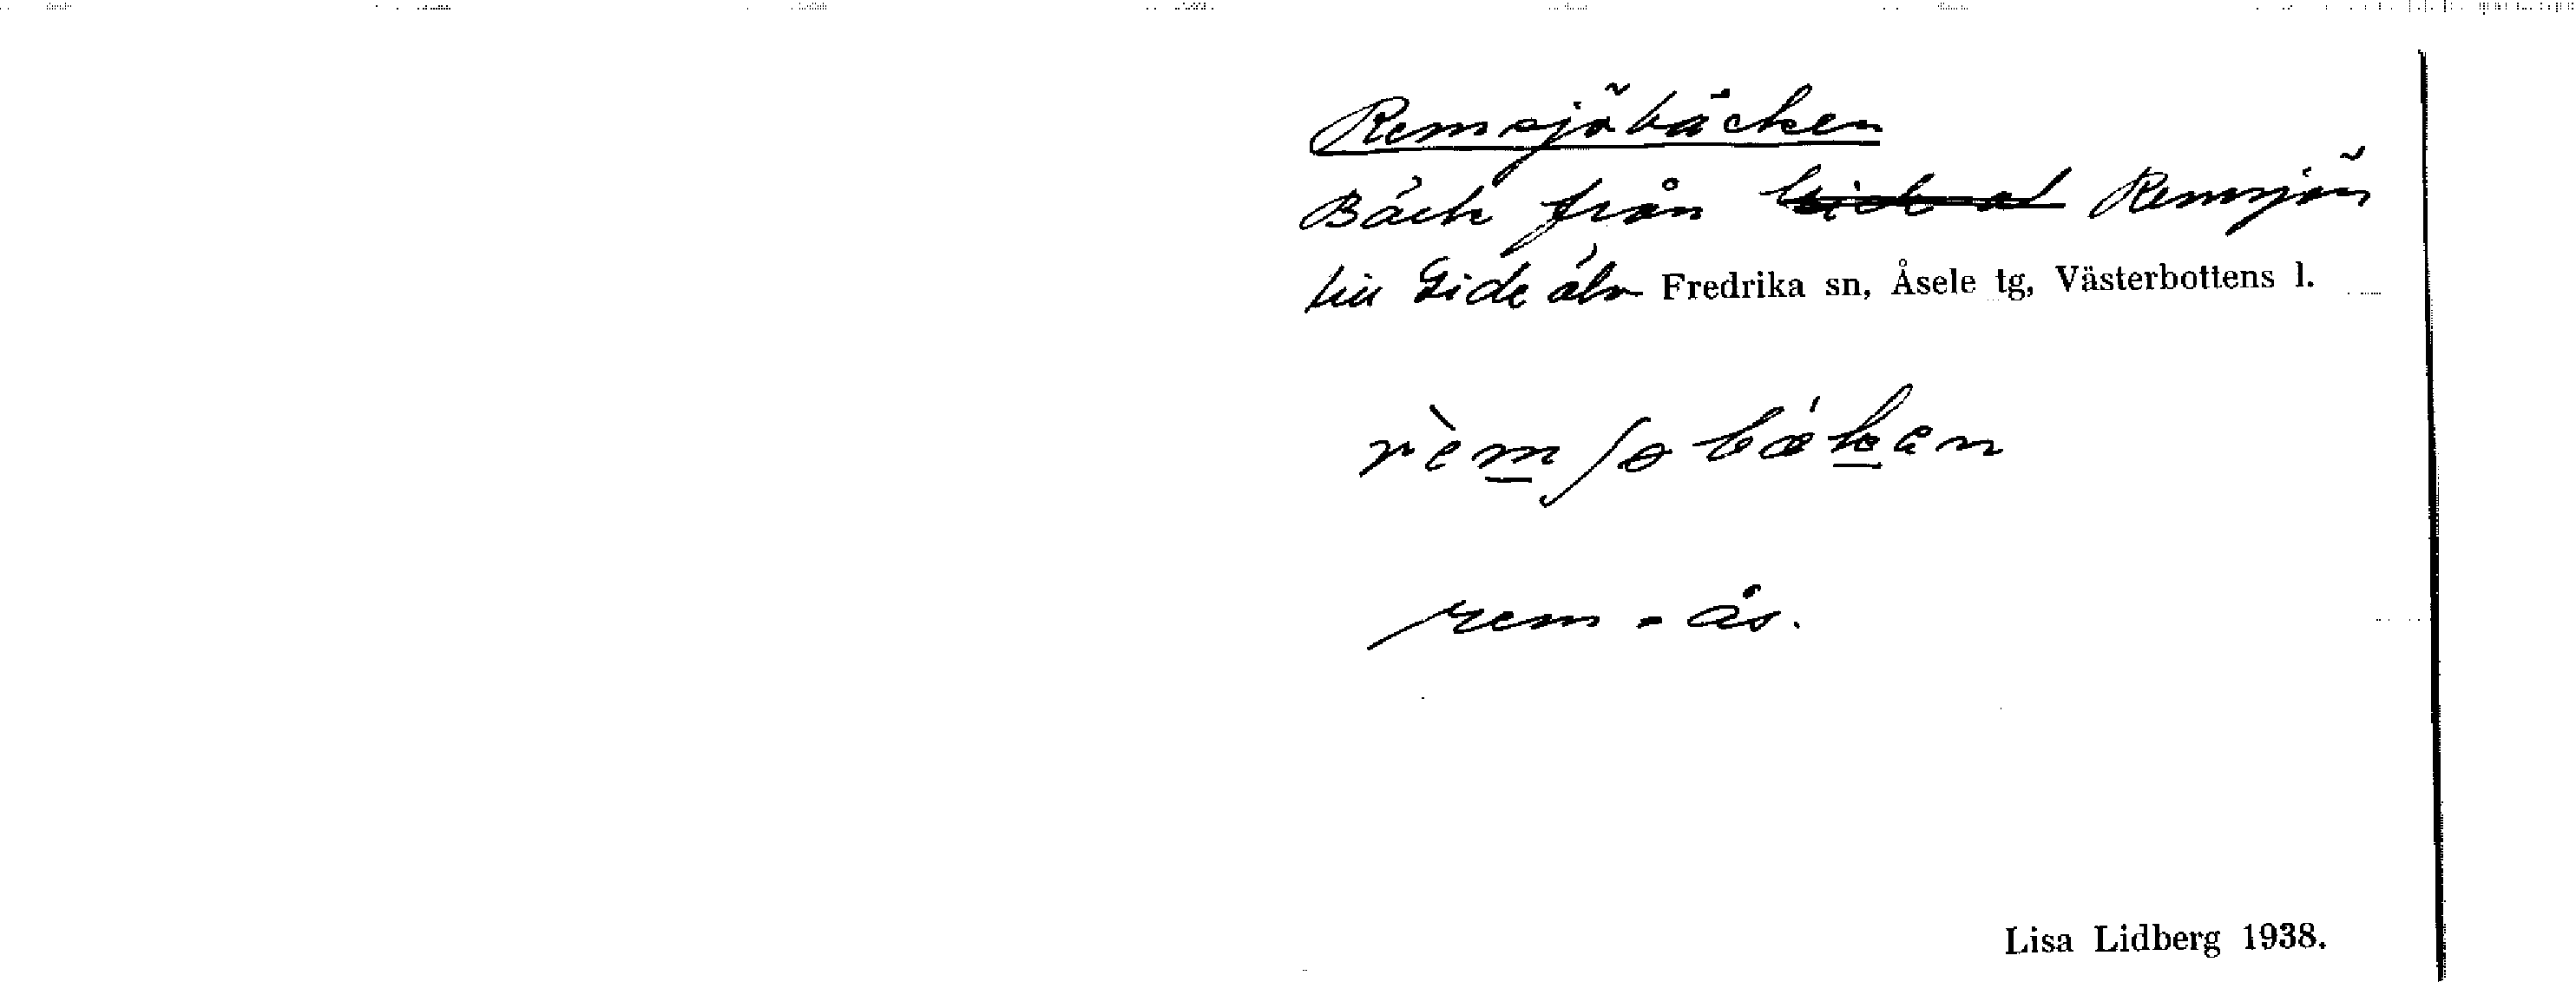 Remsjöbäcken
Bäck från Remsjön
till Gide älv Fredrika sn, Åsele tg, Västerbottens l.
rèmʃøbǽkan
rem = ås.
Lisa Lidberg 1938.